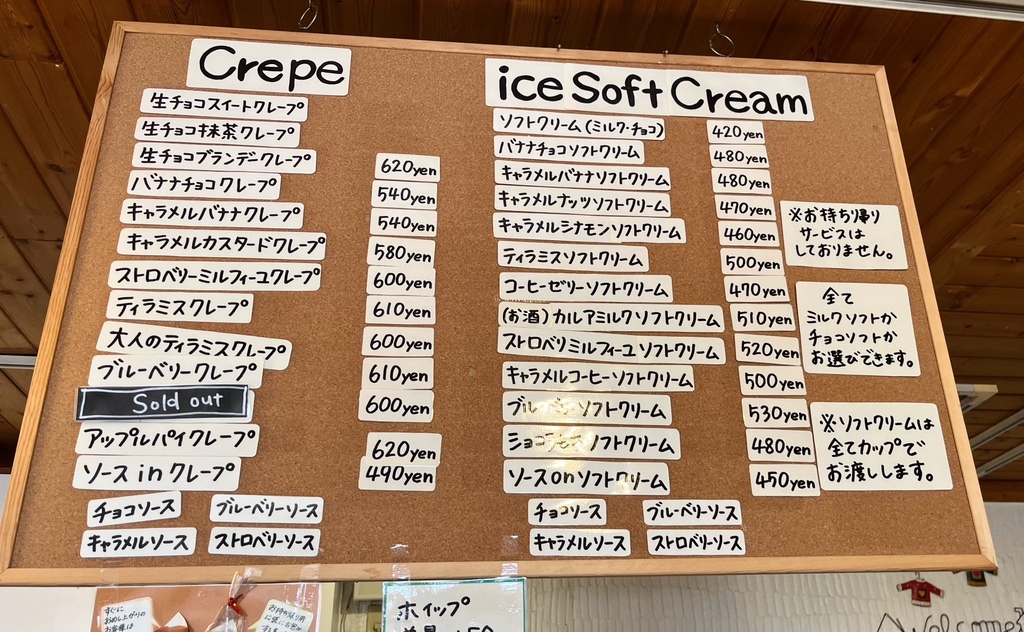 Crepe
生チョコスイートクレープ
生チョコ抹茶クレープ
生チョコブランデークレープ 620yen
バナナチョコクレープ 540yen
キャラメルバナナクレープ 540yen
キャラメルカスタードクレープ 580yen
ストロベリーミルフィーユクレープ 600yen
ティラミスクレープ 610yen
大人のティラミスクレープ 600yen
ブルーベリークレープ 610yen
Sold out 600yen
アップルパイクレープ 620yen
ソースinクレープ 490yen
チョコソース ブルーベリーソース
キャラメルソース ストロベリーソース
ice Soft Cream
ソフトクリーム(ミルク・チョコ) 420yen
バナナチョコソフトクリーム 480yen
キャラメルバナナソフトクリーム 480yen
キャラメルナッツソフトクリーム 470yen
キャラメルシナモンソフトクリーム 460yen
ティラミスソフトクリーム 500yen
コーヒーゼリーソフトクリーム 470yen
(お酒)カルアミルクソフトクリーム 510yen
ストロベリミルフィーユソフトクリーム 520yen
キャラメルコーヒーソフトクリーム 500yen
ブルーベリーソフトクリーム 530yen
ショコラモカソフトクリーム 480yen
ソースonソフトクリーム 450yen
チョコソース ブルーベリーソース
キャラメルソース ストロベリーソース
※お持ち帰り
サービスは
しておりません。
全て
ミルクソフトか
チョコソフトか
お選びできます。
※ソフトクリームは
全てカップで
お渡しします。
すぐに
お召し上がりの
お客様は
ホイップ
Welcome